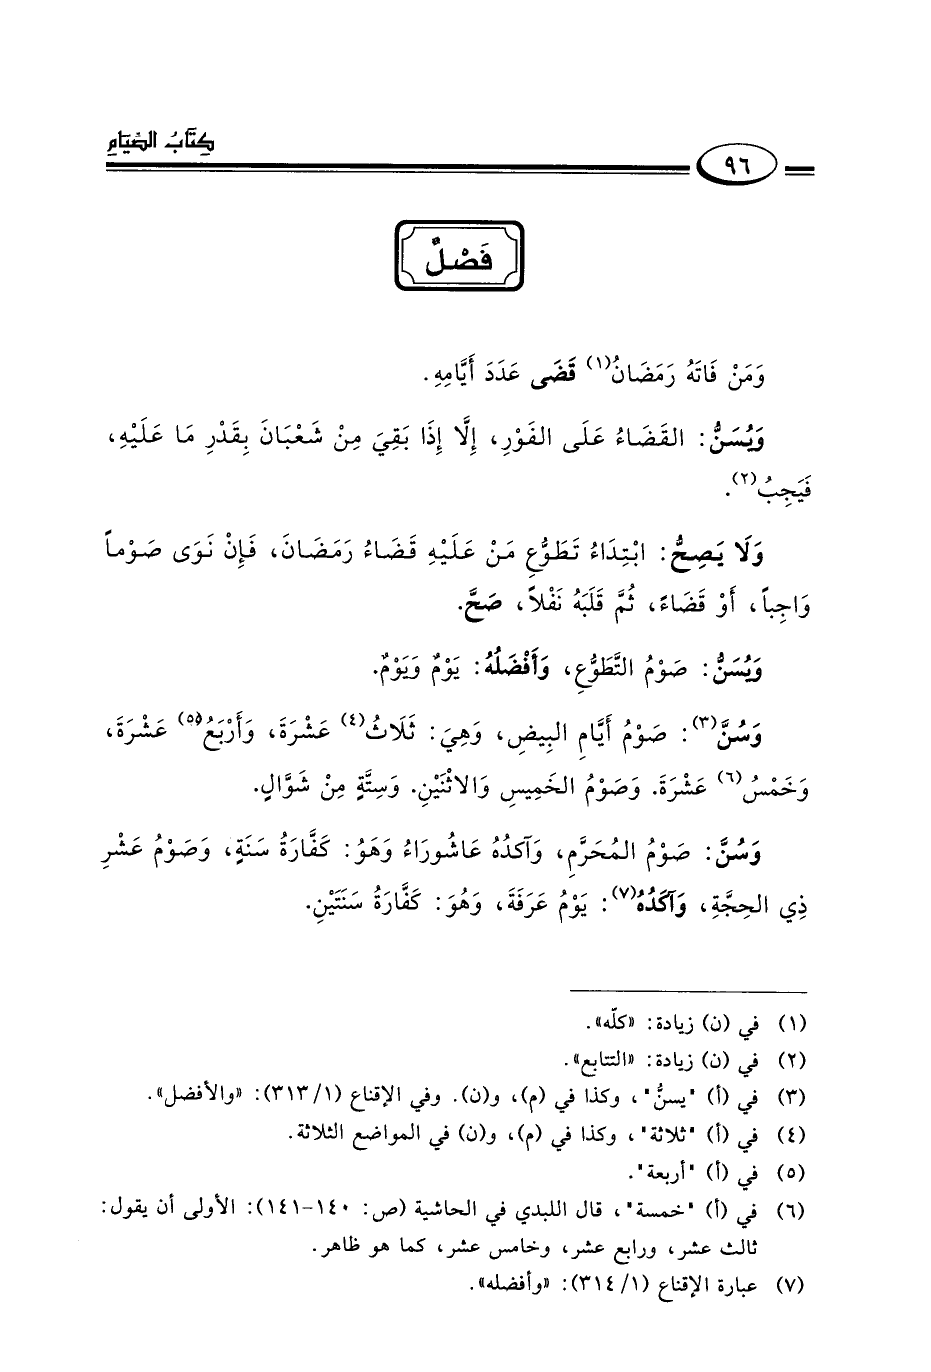 كِتَابُ الصِّيَامِ
٩٦
فَصْلٌ
وَمَنْ فَاتَهُ رَمَضَانُ(١) قَضَى عَدَدَ أَيَّامِهِ.
وَيُسَنُّ: القَضَاءُ عَلَى الفَوْرِ، إِلَّا إِذَا بَقِيَ مِنْ شَعْبَانَ بِقَدْرِ مَا عَلَيْهِ،
فَيَجِبُ(٢).
وَلَا يَصِحُّ: ابْتِدَاءُ تَطَوُّعِ مَنْ عَلَيْهِ قَضَاءُ رَمَضَانَ، فَإِنْ نَوَى صَوْماً
وَاجِباً، أَوْ قَضَاءً، ثُمَّ قَلَبَهُ نَفْلاً، صَحَّ.
وَيُسَنُّ: صَوْمُ التَّطَوُّعِ، وَأَفْضَلُهُ: يَوْمٌ وَيَوْمٌ.
وَسُنَّ(٣): صَوْمُ أَيَّامِ البِيضِ، وَهِيَ: ثَلَاثُ(٤) عَشْرَةَ، وَأَرْبَعُ(٥) عَشْرَةَ،
وَخَمْسُ(٦) عَشْرَةَ. وَصَوْمُ الخَمِيسِ وَالاثْنَيْنِ. وَسِتَّةٍ مِنْ شَوَّالٍ.
وَسُنَّ: صَوْمُ المُحَرَّمِ، وَآكدُهُ عَاشُورَاءُ وَهَوُ: كَفَّارَةُ سَنَةٍ، وَصَوْمُ عَشْرِ
ذِي الحِجَّةِ، وَآكَدُهُ(٧): يَوْمُ عَرَفَةَ، وَهُوَ: كَفَّارَةُ سَنَتَيْنِ.
(١) في (ن) زيادة: «كلّه».
(٢) في (ن) زيادة: «التتابع».
(٣) في (أ) "يسنُّ"، وكذا في (م)، و(ن). وفي الإقناع (١/ ٣١٣): «والأفضل».
(٤) في (أ) "ثلاثة"، وكذا في (م)، و(ن) في المواضع الثلاثة.
(٥) في (أ) "أربعة".
(٦) في (أ) "خمسة"، قال اللبدي في الحاشية (ص: ١٤٠-١٤١): الأولى أن يقول:
ثالث عشر، ورابع عشر، وخامس عشر، كما هو ظاهر.
(٧) عبارة الإقناع (١/ ٣١٤): «وأفضله».